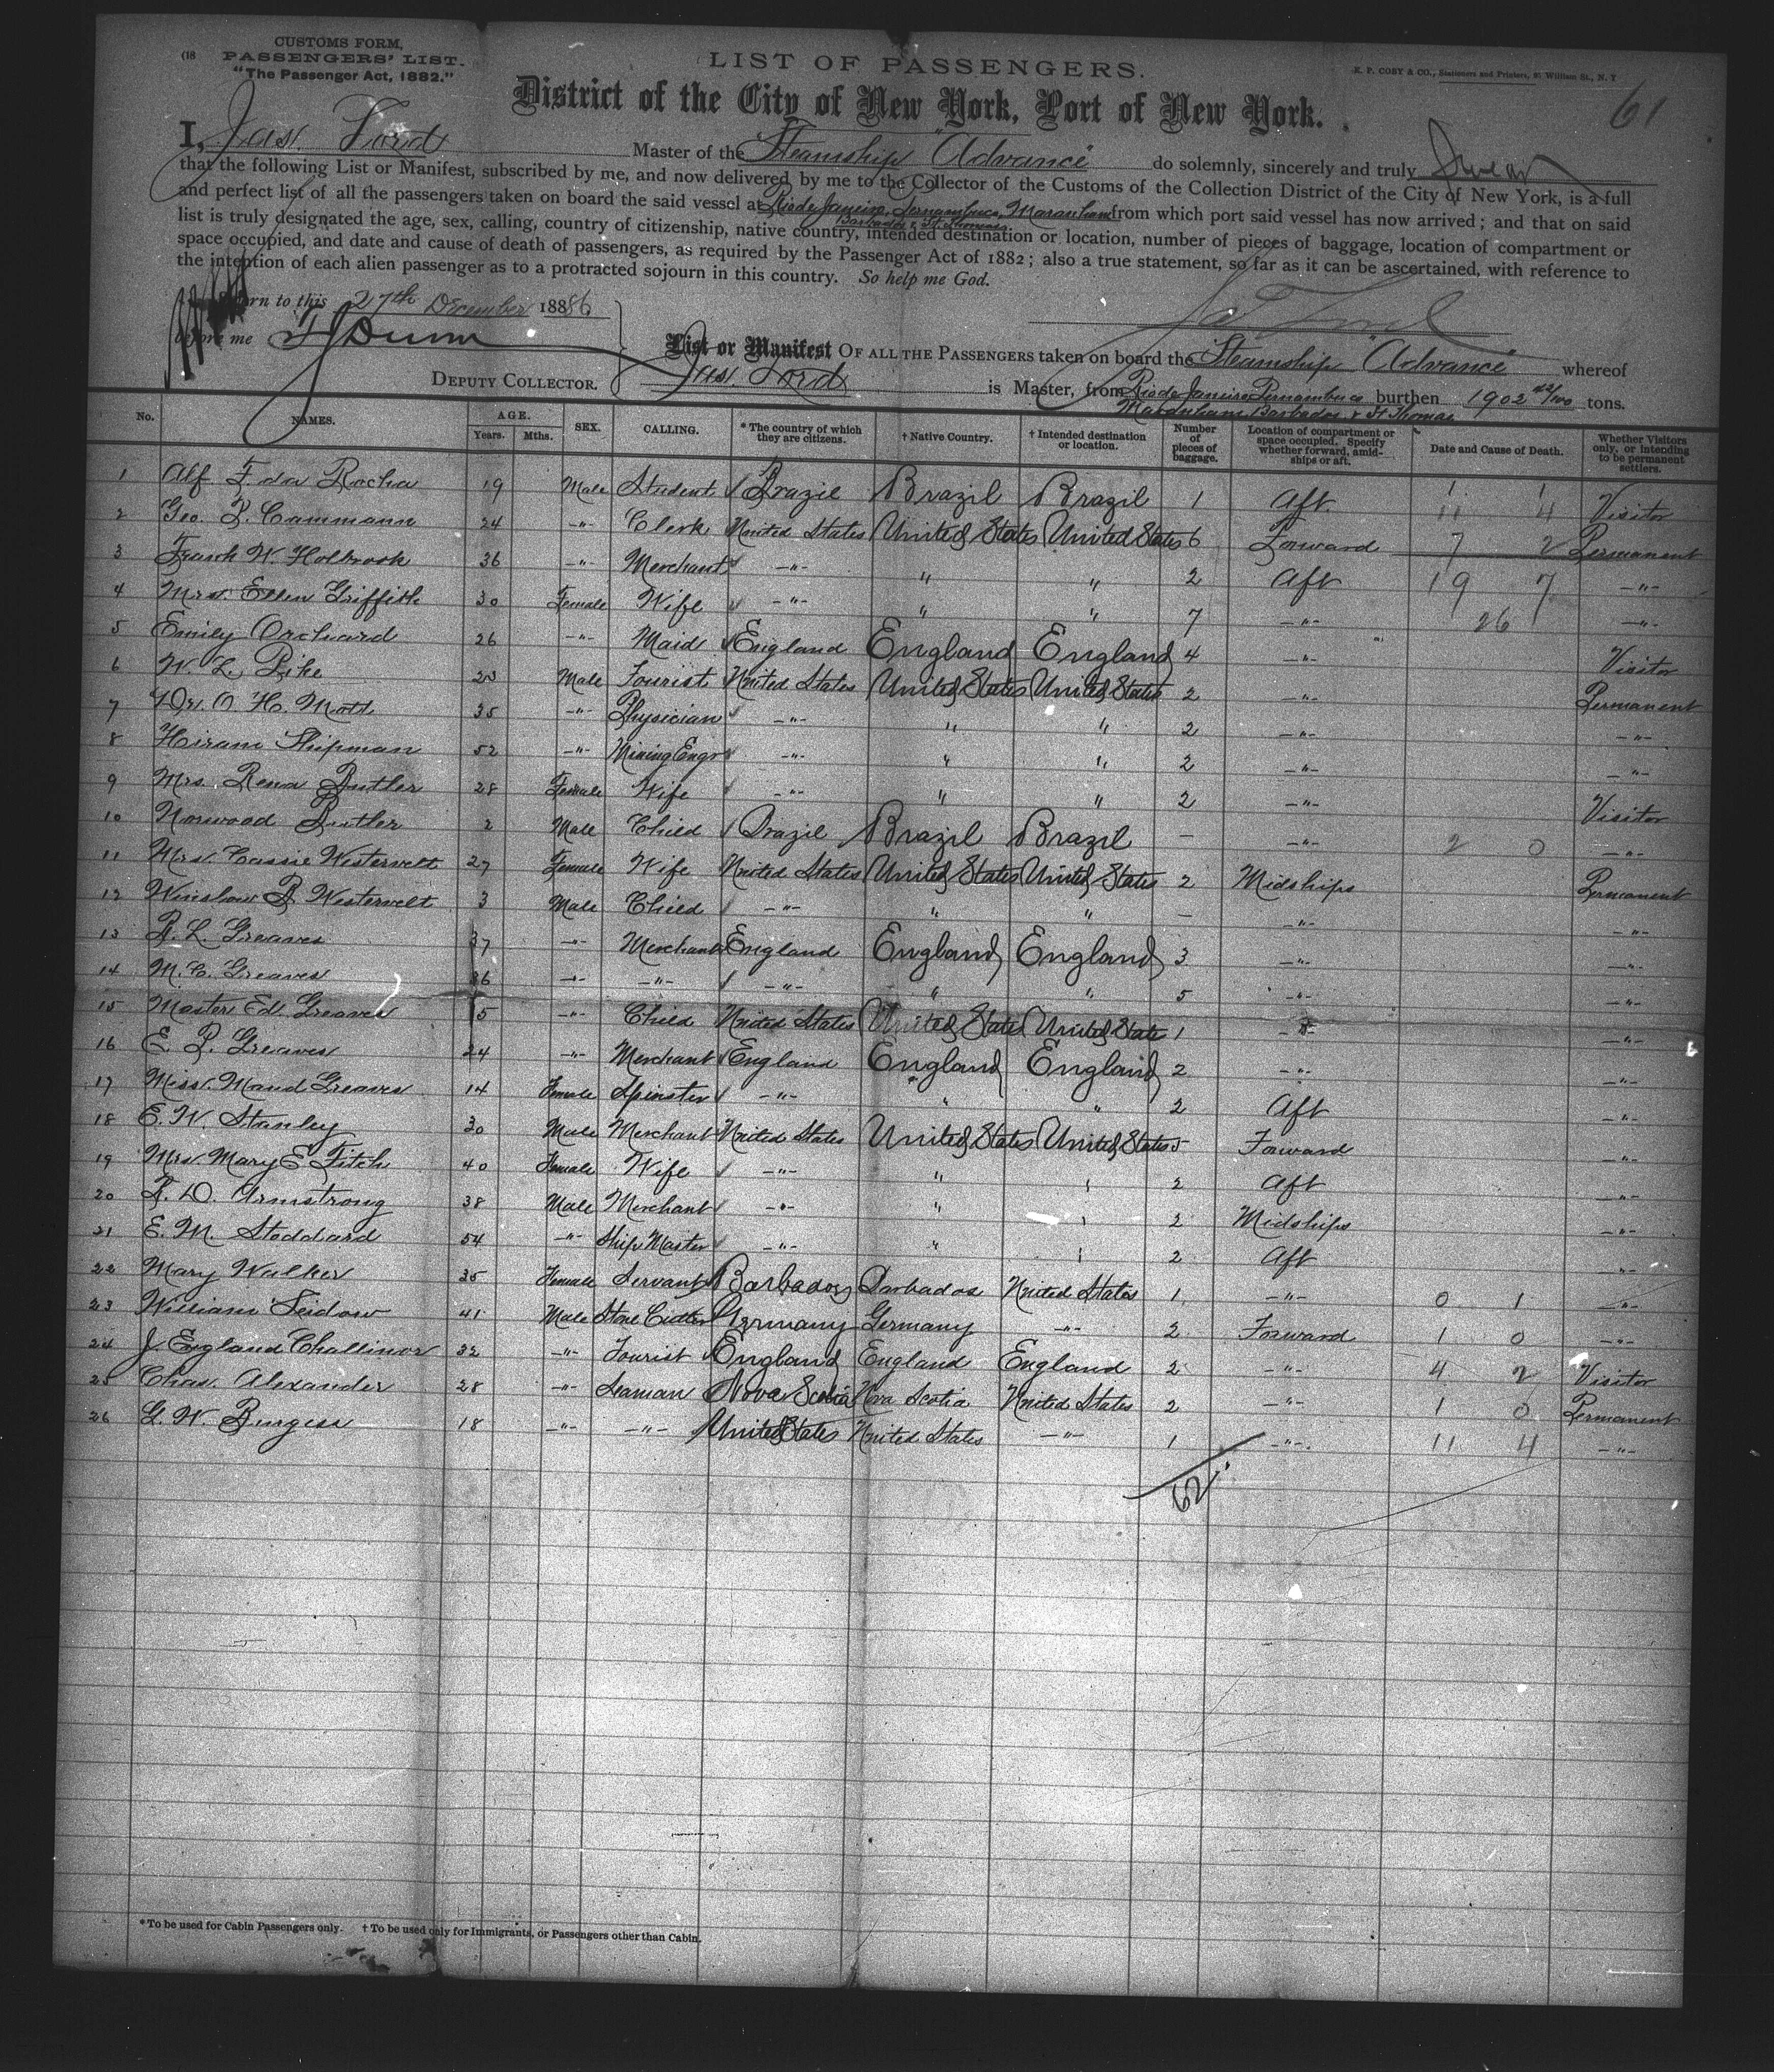 (18
CUSTOMS FORM,
PASSENGERS' LIST.
"The Passenger Act, 1882."
LIST OF PASSENGERS.
E. P. COBY & CO., Stationers and Printers, William St., N. Y
61
District of the City of New York, Port of New York.
I, Jas. Lord Master of the Steamship "Advance" do solemnly, sincerely and truly Swear
that the following List or Manifest, subscribed by me, and now delivered by me to the Collector of the Customs of the Collection District of the City of New York, is a full
and perfect list of all the passengers taken on board the said vessel at Rio de Janeiro, Pernambuco, Maranham from which port said vessel has now arrived; and that on said
Barbados & St Thomas
list is truly designated the age, sex, calling, country of citizenship, native country, intended destination or location, number of pieces of baggage, location of compartment or
space occupied, and date and cause of death of passengers, as required by the Passenger Act of 1882; also a true statement, so far as it can be ascertained, with reference to
the intention of each alien passenger as to a protracted sojourn in this country. So help me God.
Sworn to this 27th December 1886
Jas Lord
before me F J Dunn
DEPUTY COLLECTOR.
List or Manifest OF ALL THE PASSENGERS taken on board the Steamship "Advance" whereof
Jas. Lord is Master, from Rio de Janeiro Pernambuco burthen 1902 42/100 tons.
Maranham, Barbados & St Thomas
No. NAMES. AGE. Years. Mths. SEX. CALLING. * The country of which they are citizens. † Native Country. † Intended destination or location. Number of pieces of baggage. Location of compartment or space occupied. Specify whether forward, amidships or aft. Date and Cause of Death. Whether Visitors only, or intending to be permanent settlers.
1 Alf. F. da Rocha 19 Male Student Brazil Brazil Brazil 1 Aft 11 4 Visitor
2 Geo. P. Cammann 24 -"- Clerk United States United States United States 6 Forward 7 2 Permanent
3 Frank W. Holbrook 36 -"- Merchant -"- " " 2 Aft 19 7 -"-
4 Mrs. Ellen Griffith 30 Female Wife -"- " " 7 -"- 26 -"-
5 Emily Orchard 26 -"- Maid England England England 4 -"- Visitor
6 W. L. Pike 23 Male Tourist United States United States United States 2 -"- Permanent
7 Dr. O. H. Mott 35 -"- Physician -"- " " 2 -"- -"-
8 Hiram Shipman 52 -"- Mining Engr -"- " " 2 -"- -"-
9 Mrs. Rena Butler 28 Female Wife -"- " " 2 -"- Visitor
10 Norwood Butler 2 Male Child Brazil Brazil Brazil - -"- 2 0 -"-
11 Mrs. Cassie Westervelt 27 Female Wife United States United States United States 2 Midships Permanent
12 Winslow B Westervelt 3 Male Child -"- " " - -"- -"-
13 R. L Greaves 37 -"- Merchant England England England 3 -"- -"-
14 M. C. Greaves 36 -"- -"- -"- " " 5 -"- -"-
15 Master Ed. Greaves 5 -"- Child United States United States United State 1 -"- -"-
16 E. P. Greaves 24 -"- Merchant England England England 2 -"- -"-
17 Miss. Maud Greaves 14 Female Spinster -"- " " 2 Aft -"-
18 E. W. Stanley 30 Male Merchant United States United States United States 5 Forward -"-
19 Mrs. Mary E Fitch 40 Female Wife -"- " " 2 Aft -"-
20 R. D. Armstrong 38 Male Merchant -"- " " 2 Midships -"-
21 E. M. Stoddard 54 -"- Ship Master -"- " " 2 Aft -"-
22 Mary Walker 35 Female Servant Barbados Barbados United States 1 -"- 0 1 -"-
23 William Seidow 41 Male Stone Cutter Germany Germany -"- 2 Forward 1 0 -"-
24 J. England Challinor 32 -"- Tourist England England England 2 -"- 4 2 Visitor
25 Chas. Alexander 28 -"- Seaman Nova Scotia Nova Scotia United States 2 -"- 1 0 Permanent
26 G. W. Burgess 18 -"- -"- United States United States -"- 1 -"- 11 4 -"-
62
* To be used for Cabin Passengers only. † To be used only for Immigrants, or Passengers other than Cabin.